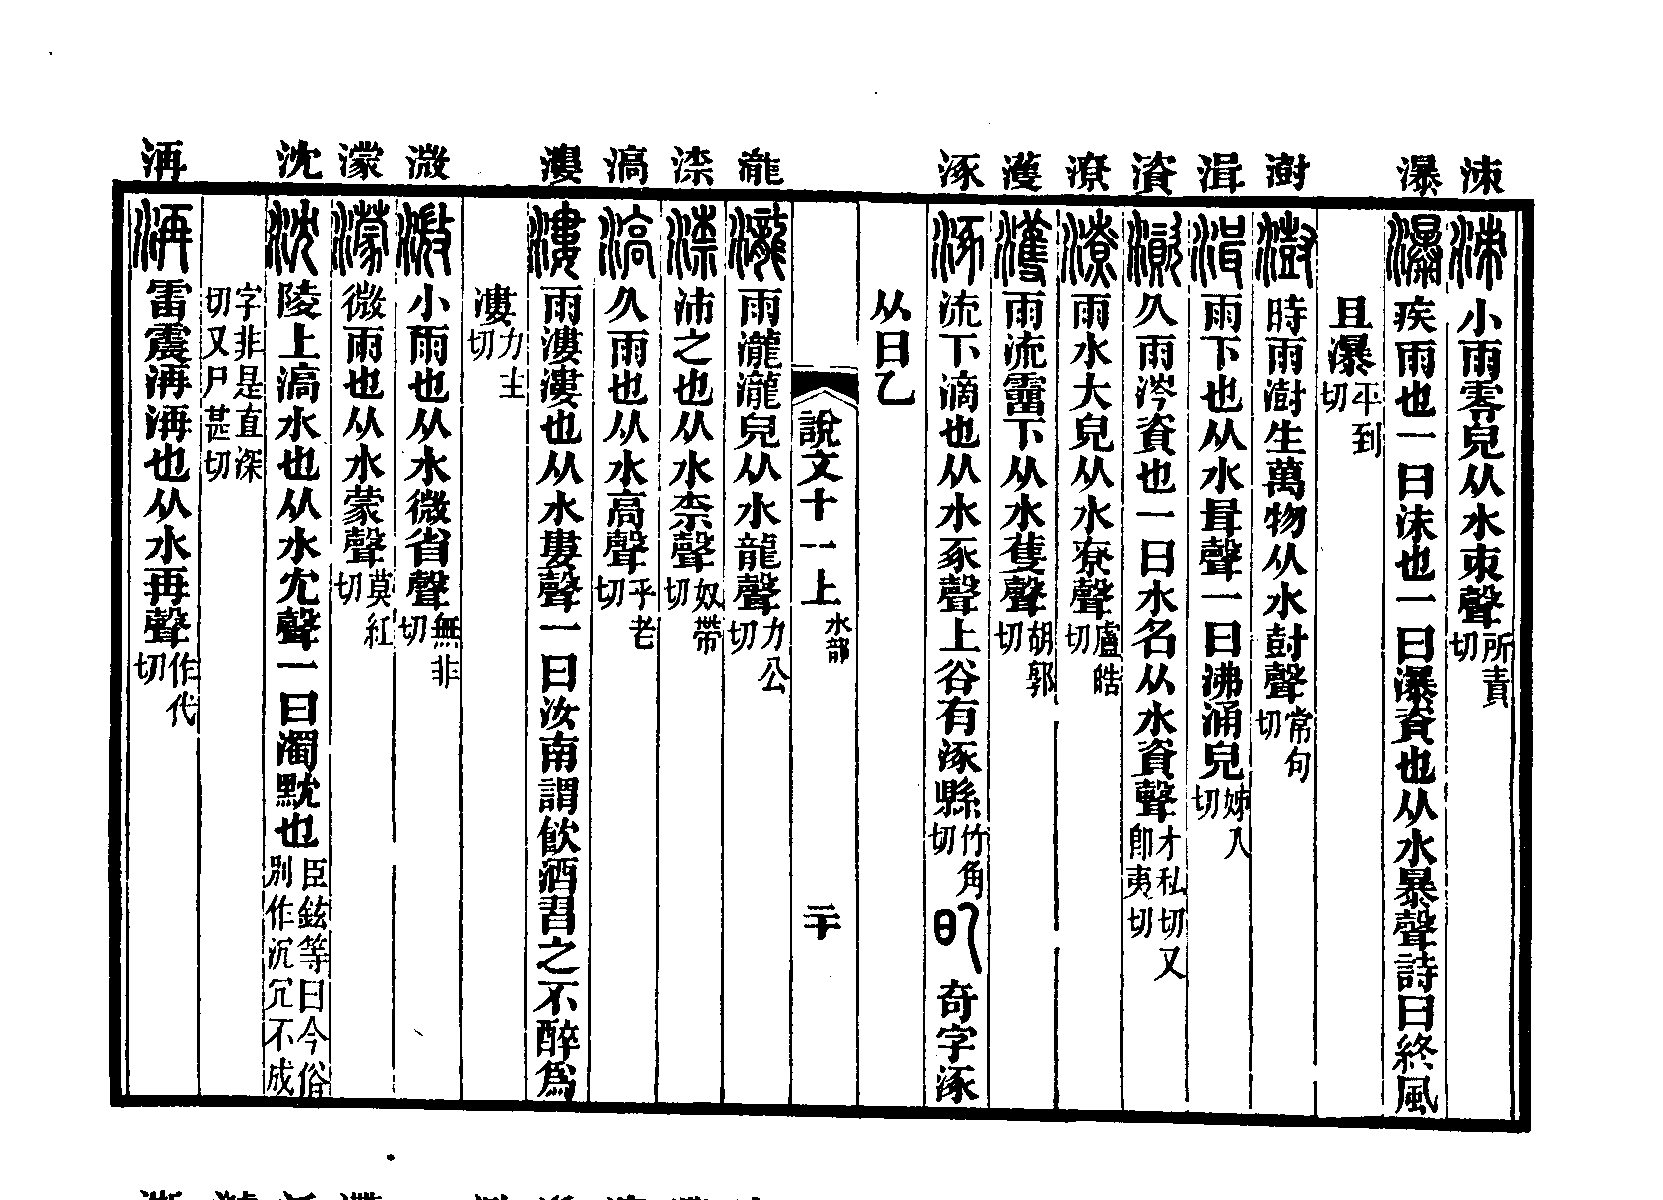 涑 瀑 澍 湒 澬 潦 濩 涿 瀧 渿 滈 漊 溦 濛 沈 洅
涑 小雨零皃从水朿聲所責切
瀑 疾雨也一曰沫也一曰瀑資也从水暴聲詩曰終風
且瀑平到切
澍 時雨澍生萬物从水尌聲常句切
湒 雨下也从水咠聲一曰沸涌皃姊入切
澬 久雨涔資也一曰水名从水資聲才私切又卽夷切
潦 雨水大皃从水尞聲盧皓切
濩 雨流霤下从水蒦聲胡郭切
涿 流下滴也从水豖聲上谷有涿縣竹角切 奇字涿
从日乙
說文十一上 水部 二十
瀧 雨瀧瀧皃从水龍聲力公切
渿 沛之也从水柰聲奴帶切
滈 久雨也从水高聲乎老切
漊 雨漊漊也从水婁聲一曰汝南謂飮酒習之不醉爲
漊力主切
溦 小雨也从水微省聲無非切
濛 微雨也从水蒙聲莫紅切
沈 陵上滈水也从水冘聲一曰濁默也臣鉉等曰今俗別作沉冗不成
字非是直深切又尸甚切
洅 雷震洅洅也从水再聲作代切